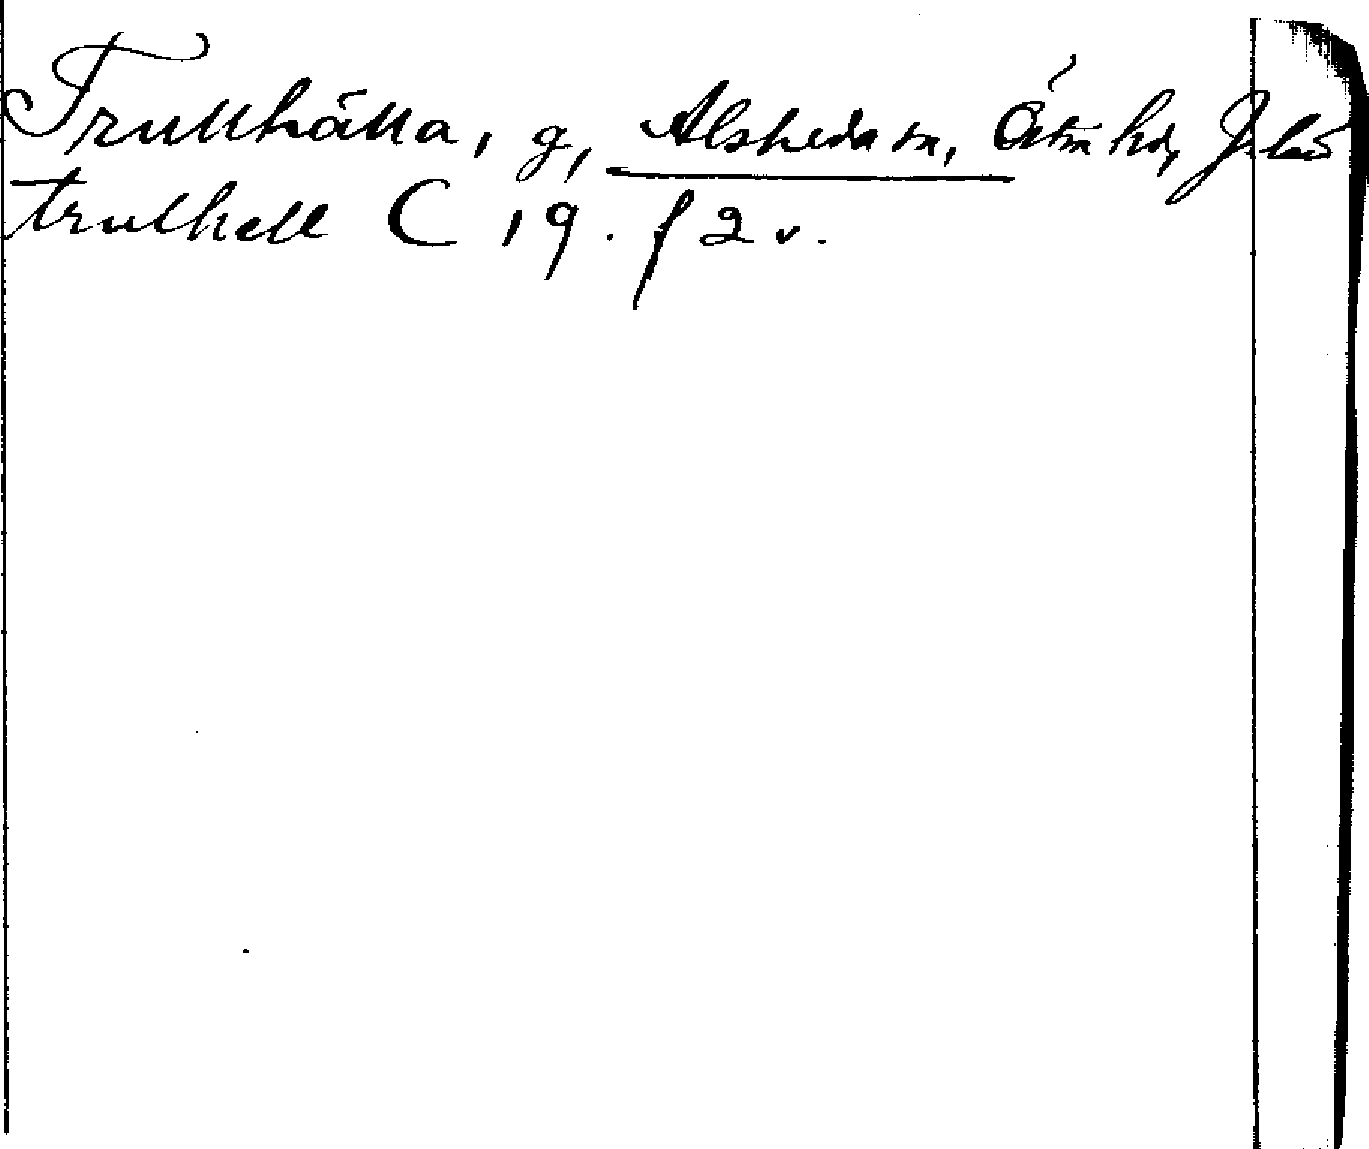 Trullhälla, g, Alsheda sn, Östra hd, J. län
trulhell C 19. f 2 v.